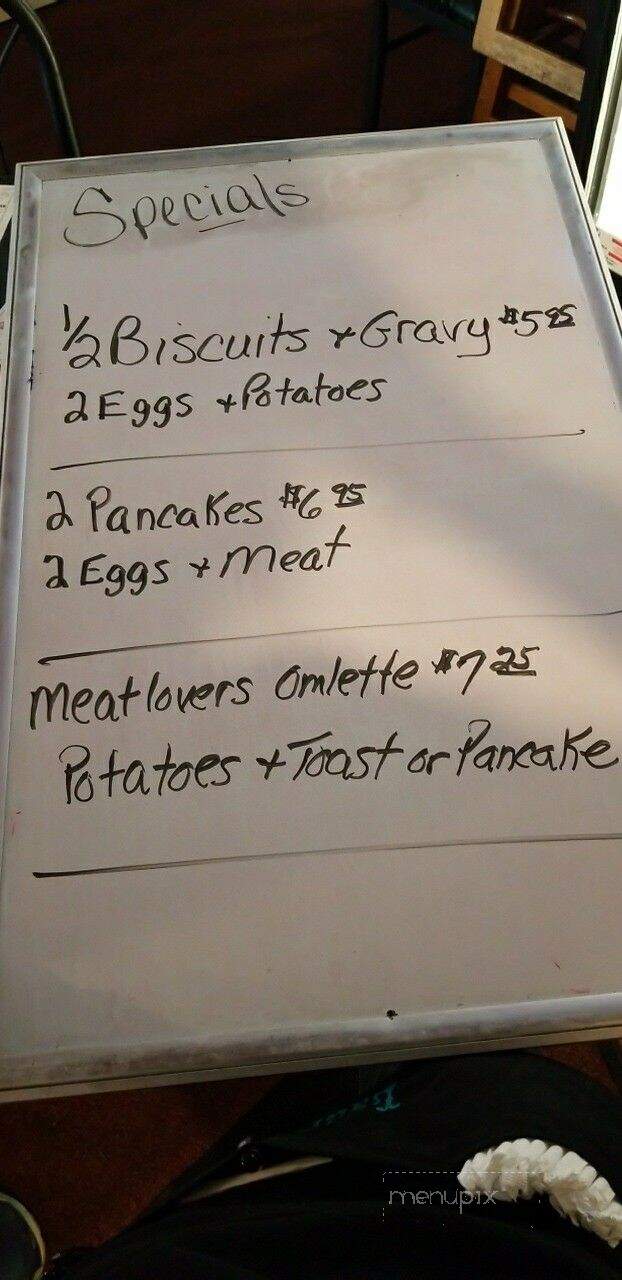 Specials
1/2 Biscuits + Gravy $5 95
2 Eggs + Potatoes
2 Pancakes $6 95
2 Eggs + Meat
Meatlovers Omlette $7 25
Potatoes + Toast or Pancake
menupix